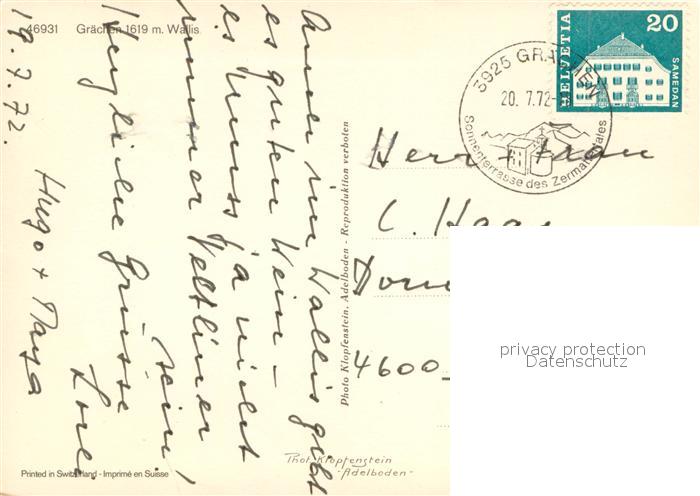 46931 Grächen 1619 m. Wallis
19.7.72.
Auch im Wallis gibt
es guten Wein –
es muss ja nicht
immer Veltliner
sein!
Herzliche Grüsse
Hugo + Maya
Photo Klopfenstein, Adelboden - Reproduktion verboten
Phot. Klopfenstein
- Adelboden -
Printed in Switzerland - Imprimé en Suisse
HELVETIA
20
SAMEDAN
3925 GRÄCHEN
20. 7.72
Sonnenterrasse des Zermattertales
Herr + Frau
C. Haas
4600
privacy protection
Datenschutz